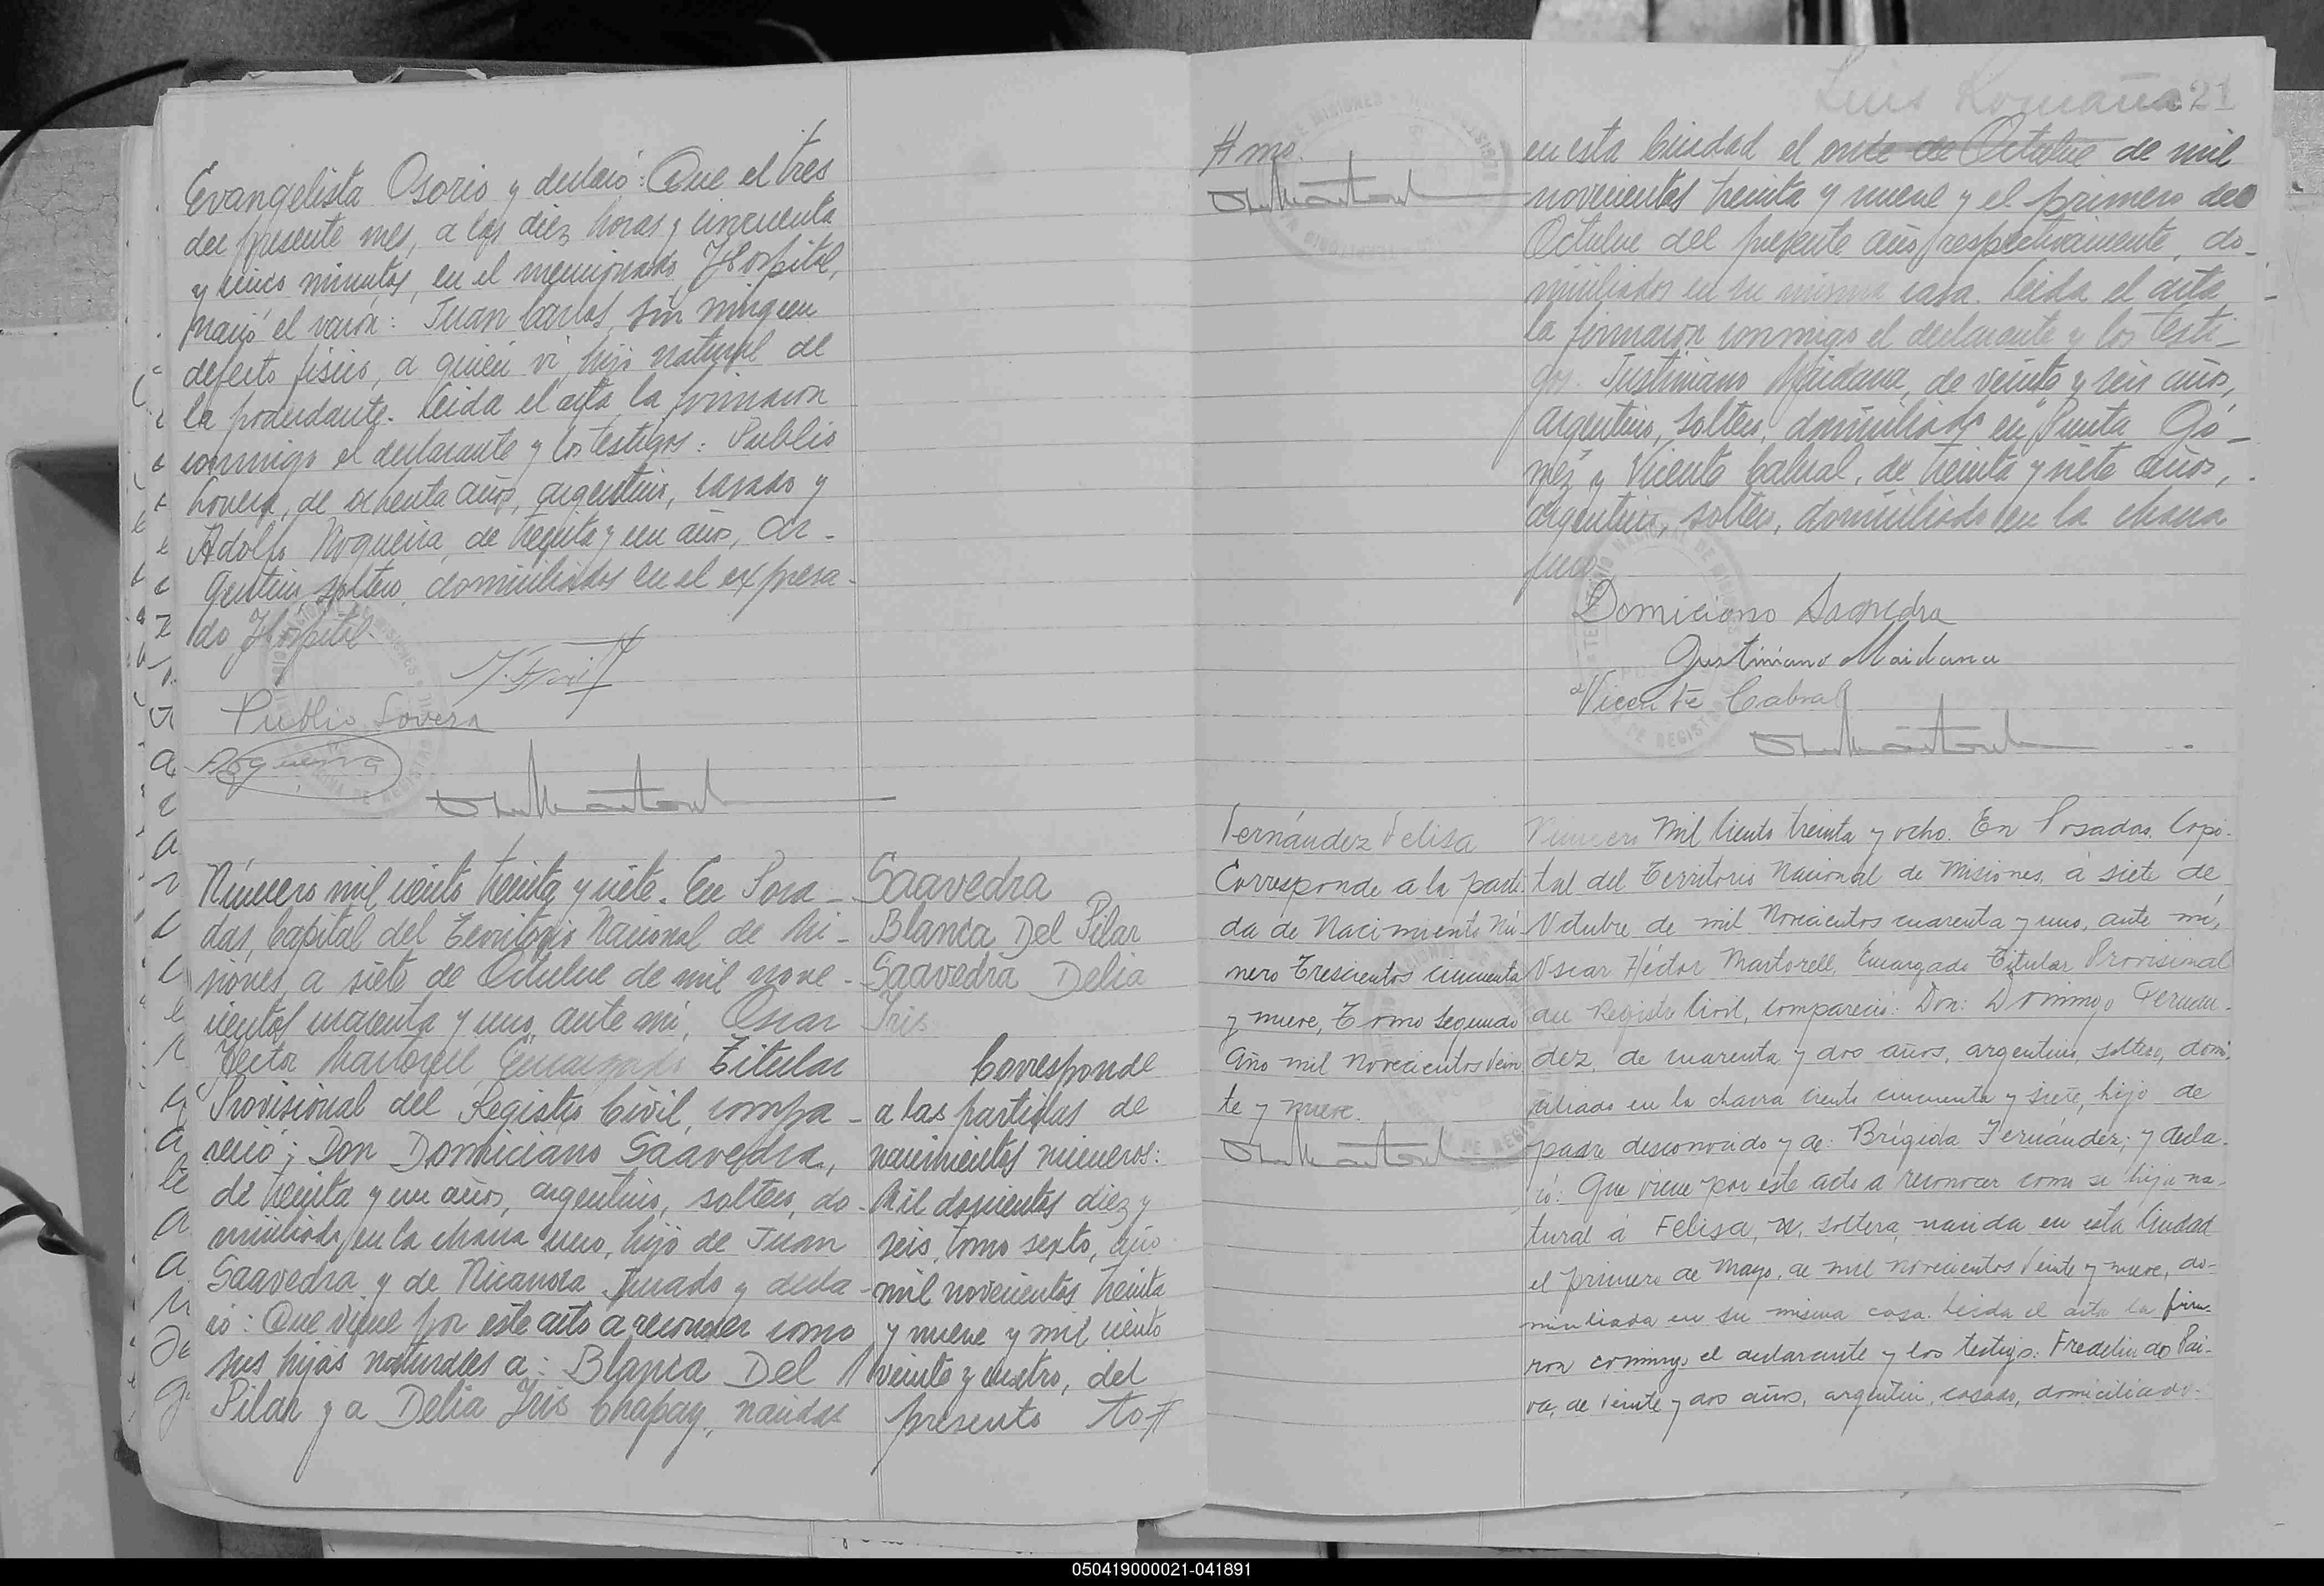 Evangelista Osorio y declaró: Que el tres
del presente mes, a las diez horas y cincuenta
y cinco minutos, en el mencionado Hospital,
nació el varón: Juan Carlos, sin ningun
defecto fisico, a quien vi, hijo natural de
la poderdante. Leida el acta la firmaron
conmigo el declarante y los testigos: Publio
Lovera, de ochenta años, argentino, casado y
Adolfo Nogueira, de treinta y un años, ar-
gentino, soltero, domiciliados en el expresa-
do Hospital.
Publio Lovera
Número mil ciento treinta y siete. En Posa-
das, Capital del Territorio Nacional de Mi-
siones, a siete de Octubre de mil nove-
cientos cuarenta y uno, ante mi, Oscar
Hector Martorell Encargado Titular
Provisional del Registro Civil, compa-
reció; Don Domiciano Saavedra,
de treinta y un años, argentino, soltero, do-
miciliado en la chacra uno, hijo de Juan
Saavedra y de Nicanora Jurado y decla-
ró: Que viene por este acto a reconocer como
sus hijas naturales a: Blanca Del
Pilar y a Delia Iris Chapay, nacidas
Saavedra
Blanca Del Pilar
Saavedra Delia
Iris
Corresponde
a las partidas de
nacimientos números:
Mil doscientos diez y
seis, tomo sexto, año
mil novecientos treinta
y nueve y mil ciento
veinte y cuatro, del
presente to#
Luis Romaña 21
#mo.
en esta Ciudad el once de Octubre de mil
novecientos treinta y nueve y el primero de
Octubre del presente año respectivamente, do-
miciliados en su misma casa. Leida el acta
la firmaron conmigo el declarante y los testi-
gos. Justiniano Maidana, de veinte y seis años,
argentino, soltero, domiciliado en "Punta Gó-
mez" y Vicente Cabral, de treinta y siete años,
argentino, soltero, domiciliado en la chacra
Domiciano Saavedra
Justiniano Maidana
Vicente Cabral
Fernández Felisa
Corresponde a la parti
da de Nacimiento Nú-
mero Trescientos cincuenta
y nueve, Tomo Segundo
Año mil Novecientos Vein
te y nueve.
Numero Mil Ciento treinta y ocho. En Posadas, Capi-
tal del Territorio Nacional de Misiones, á siete de
Octubre de mil Novecientos cuarenta y uno, ante mi,
Oscar Héctor Martorell, Encargado Titular Provisional
del Registro Civil, compareció: Don: Domingo Fernan-
dez, de cuarenta y dos años, argentino, soltero, domi-
ciliado en la chacra ciento cincuenta y siete, hijo de
padre desconocido y de: Brígida Fernández; y decla-
ró: Que viene por este acto a reconocer como su hija na-
tural á Felisa, soltera, nacida en esta Ciudad
el primero de Mayo, de mil novecientos Veinte y nueve, do-
miciliada en su misma casa. Leida el acta la firma-
ron conmigo el declarante y los testigos: Fredelindo Pai-
va, de veinte y dos años, argentino, casado, domiciliado
050419000021-041891